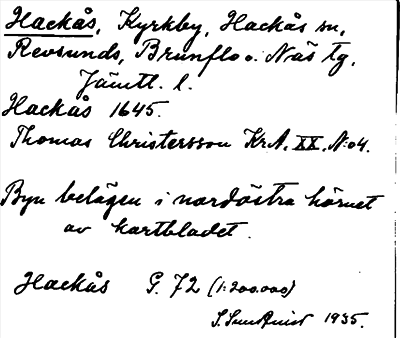 Hackås, Kyrkby, Hackås sn,
Revsunds, Brunflo o. Näs tg,
Jämtl. l.
Hackås 1645.
Thomas Christersson Kr.A. XX. N:o 4.
Byn belägen i nordöstra hörnet
av kartbladet.
Hackås G. 72 (1:200.000)
1935.